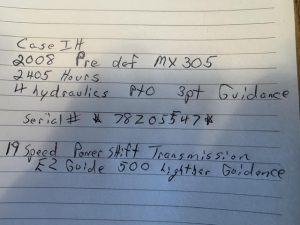 Case IH
2008 Pre def MX 305
2405 Hours
4 hydraulics PTO 3pt Guidance
Serial # * 78205547 *
19 Speed Power Shift Transmission
EZ Guide 500 Lightbar Guidence